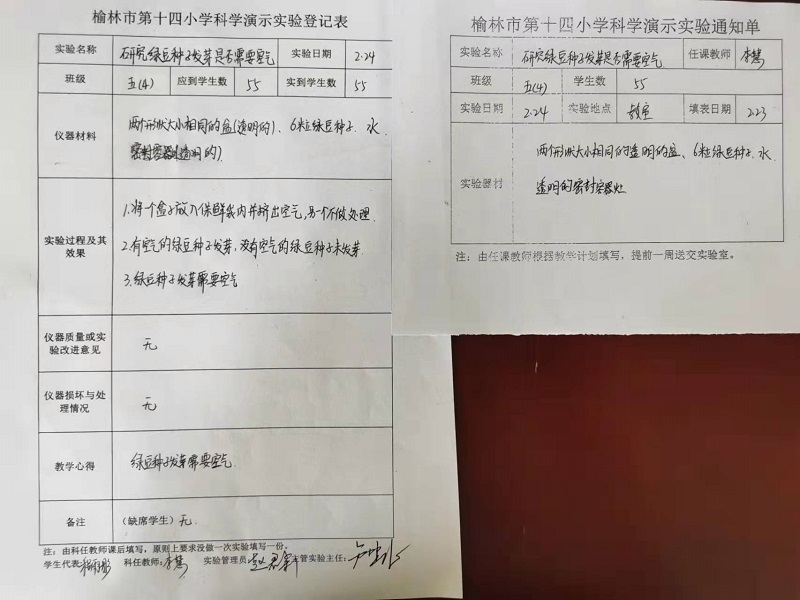 榆林市第十四小学科学演示实验登记表
实验名称 研究绿豆种子发芽是否需要空气 实验日期 2.24
班级 五(4) 应到学生数 55 实到学生数 55
仪器材料 两个形状大小相同的盒(透明的)、6粒绿豆种子、水
密封容器(透明的)
实验过程及其效果 1.将一个盒子放入保鲜袋内并挤出空气,另一个不做处理.
2.有空气的绿豆种子发芽,没有空气的绿豆种子未发芽.
3.绿豆种子发芽需要空气
仪器质量或实验改进意见 无
仪器损坏与处理情况 无
教学心得 绿豆种子发芽需要空气.
备注 (缺席学生)无.
注:由科任教师课后填写,原则上要求没做一次实验填写一份。
学生代表: 科任教师:李慧 实验管理员: 主管实验主任:
榆林市第十四小学科学演示实验通知单
实验名称 研究绿豆种子发芽是否需要空气 任课教师 李慧
班级 五(4) 学生数 55
实验日期 2.24 实验地点 教室 填表日期 2.23
实验器材 两个形状大小相同的透明的盒、6粒绿豆种子.水
透明的密封容器
注:由任课教师根据教学计划填写,提前一周送交实验室。